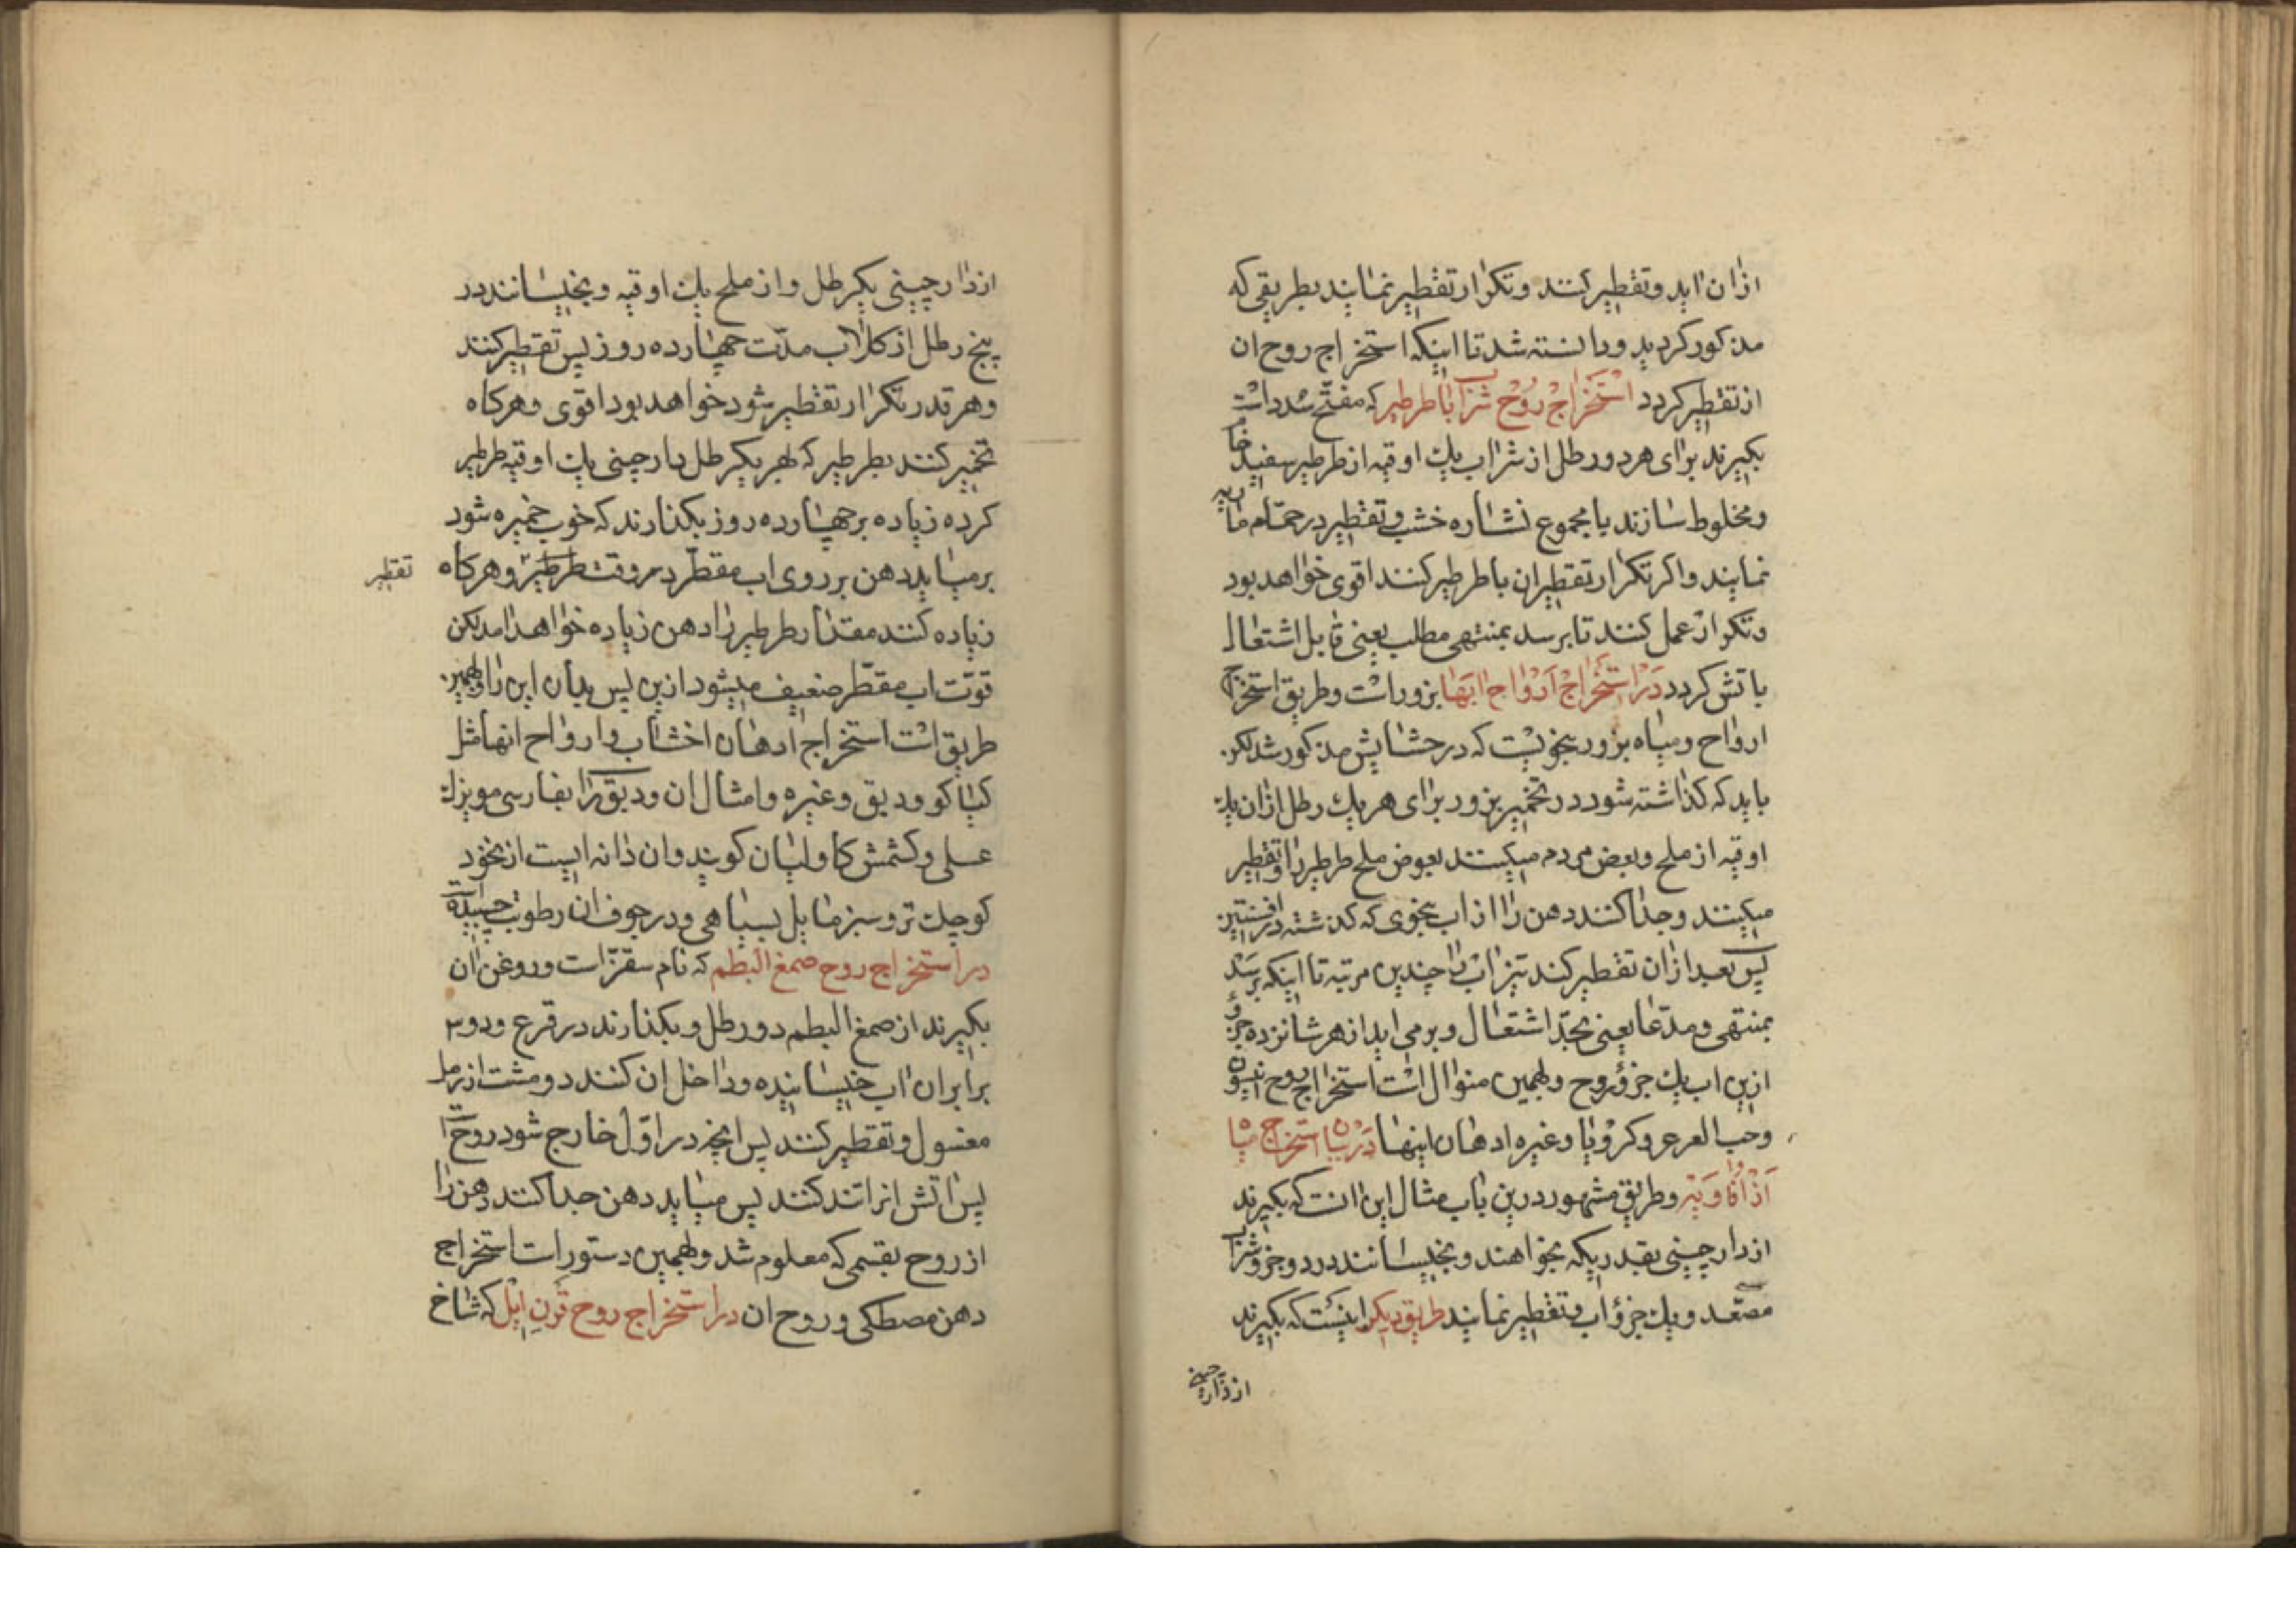 ازان اید و تقطیر کنند و تکرار تقطیر نمایند بطریقی که
مذکور کردید و دانسته شد تا اینکه استخراج روح ان
از تقطیر کردد استخراج روح شراب با طرطیر که مفتح سدد است
بکیرند برای هر دو رطل از شراب یک اوقیه از طرطیر سفید خام
و مخلوط سازند با مجموع نشاره خشب و تقطیر در حمام ماریه
نمایند و اکر تکرار تقطیر ان با طرطیر کنند اقوی خواهد بود
و تکرار عمل کنند تا برسد بمنتهی مطلب یعنی قابل اشتعال
باتش کردد در استخراج ارواح ابها بزور است و طریق استخراج
ارواح و میاه بزور بنحویست که در حشایش مذکور شد لکن
باید که کذاشته شود در تخمیر بزور برای هر یک رطل ازان یک
اوقیه از ملح و بعض مردم میکنند بعوض ملح طرطیر را و تقطیر
میکنند و جدا کنند دهن را از اب بنحوی که کذشته در افسنتین
پس بعد ازان تقطیر کنند تیزاب را چندین مرتبه تا اینکه برسد
بمنتهی و مدعا یعنی بحد اشتعال و برمی اید از هر شانزده جزؤ
ازین اب یک جزؤ روح و بهمین منوال است استخراج روح انیسون
و حب العرعر و کرویا و غیره ادهان اینها در بیان استخراج میاه
از افاویه و طریق مشهور درین باب مثال این انست که بکیرند
از دارچینی بقدریکه بخواهند و بخیسانند در دو جزو شراب
مصعد و یک جزؤ اب و تقطیر نمایند طریق دیکر اینست که بکیرند
از دارچینی
از دارچینی یکرطل و از ملح یک اوقیه و بخیسانند در
پنج رطل از کلاب مدت چهارده روز پس تقطیر کنند
و هر قدر تکرار تقطیر شود خواهد بود اقوی و هرکاه
تخمیر کنند بطرطیر که بهر یکرطل دارچینی یک اوقیه طرطیر
کرده زیاده بر چهارده روز بکذارند که خوب خمیره شود
برمیاید دهن بر روی اب مقطر در وقت طرطیر و هرکاه
تقطیر
زیاده کنند مقدار طرطیر را دهن زیاده خواهد امد لکن
قوت اب مقطر ضعیف میشود ازین پس بدان این را و بهمین
طریق است استخراج ادهان اخشاب و ارواح انها مثل
کیاکو و دبق و غیره و امثال ان و دبق را بفارسی مویزک
عسلی و کشمش کاولیان کویند و ان دانه ایست از نخود
کوچک تر و سبز مایل بسیاهی و در جوف ان رطوبت چسبیده
در استخراج روح صمغ البطم که نام سقز است و روغن ان
بکیرند از صمغ البطم دو رطل و بکذارند در قرع و دو
برابر ان اب خیسانیده و داخل ان کنند دو مشت از رمل
مغسول و تقطیر کنند پس انچه در اول خارج شود روح است
پس اتش انرا تند کنند پس میاید دهن جدا کنند دهن را
از روح بقسمی که معلوم شد و بهمین دستور است استخراج
دهن مصطکی و روح ان در استخراج روح قرن ایل که شاخ